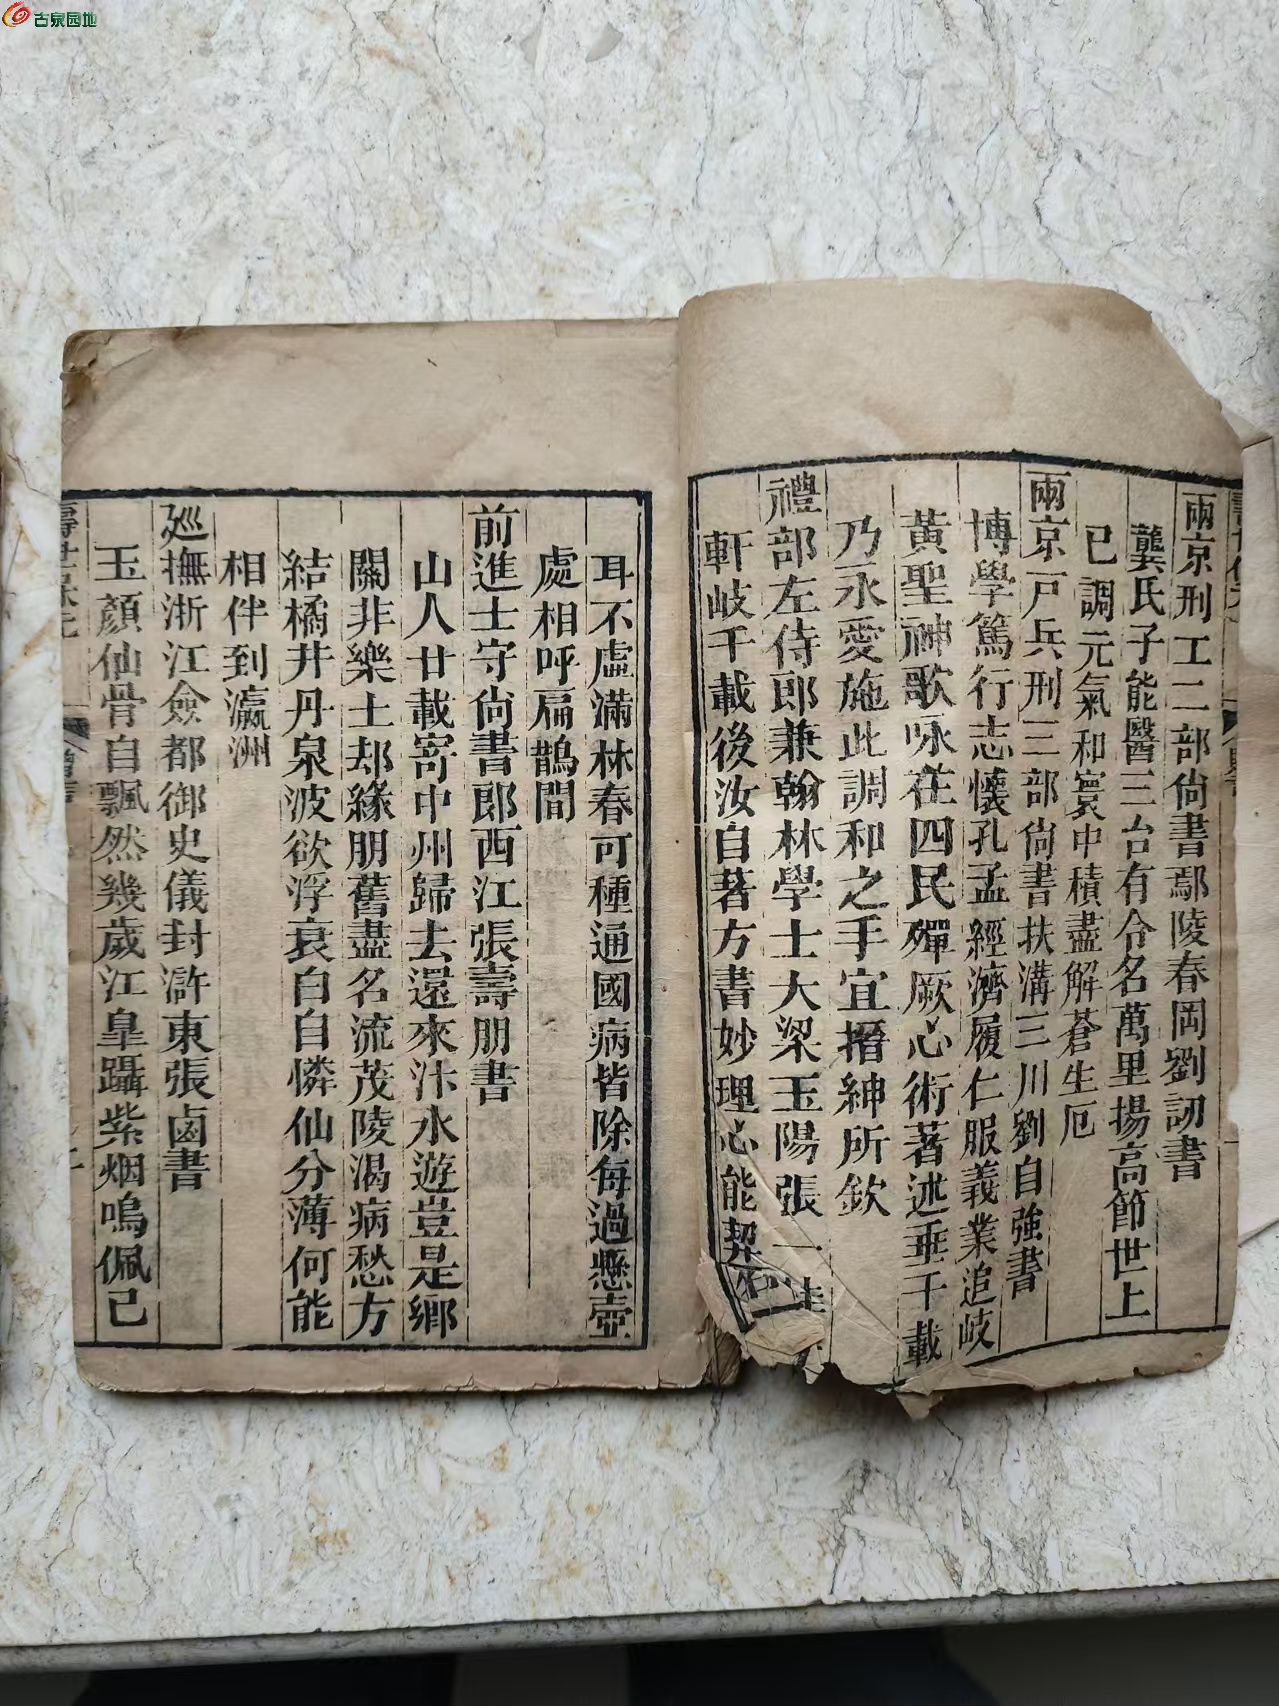 古泉园地
兩京刑工二部尙書鄢陵春岡劉訒書
龔氏子能醫三台有令名萬里揚高節世上
已調元氣和寰中積盡解蒼生厄
兩京戸兵刑三部尙書扶溝三川劉自強書
博學篤行志懷孔孟經濟履仁服義業追岐
黃聖神歌咏在四民殫厥心術著述垂千載
乃永愛施此調和之手宜搢紳所欽
禮部左侍郎兼翰林學士大梁玉陽張一桂
軒岐千載後汝自著方書妙理心能契
耳不虛滿林春可種通國病皆除每過懸壺
處相呼扁鵲間
前進士守尙書郎西江張壽朋書
山人廿載寄中州歸去還來汴水遊豈是鄉
關非樂土却緣朋舊盡名流茂陵渴病愁方
結橘井丹泉波欲浮衰白自憐仙分薄何能
相伴到瀛洲
廵撫浙江僉都御史儀封滸東張鹵書
玉顏仙骨自飄然幾歲江皐躡紫烟鳴佩已
壽世保元